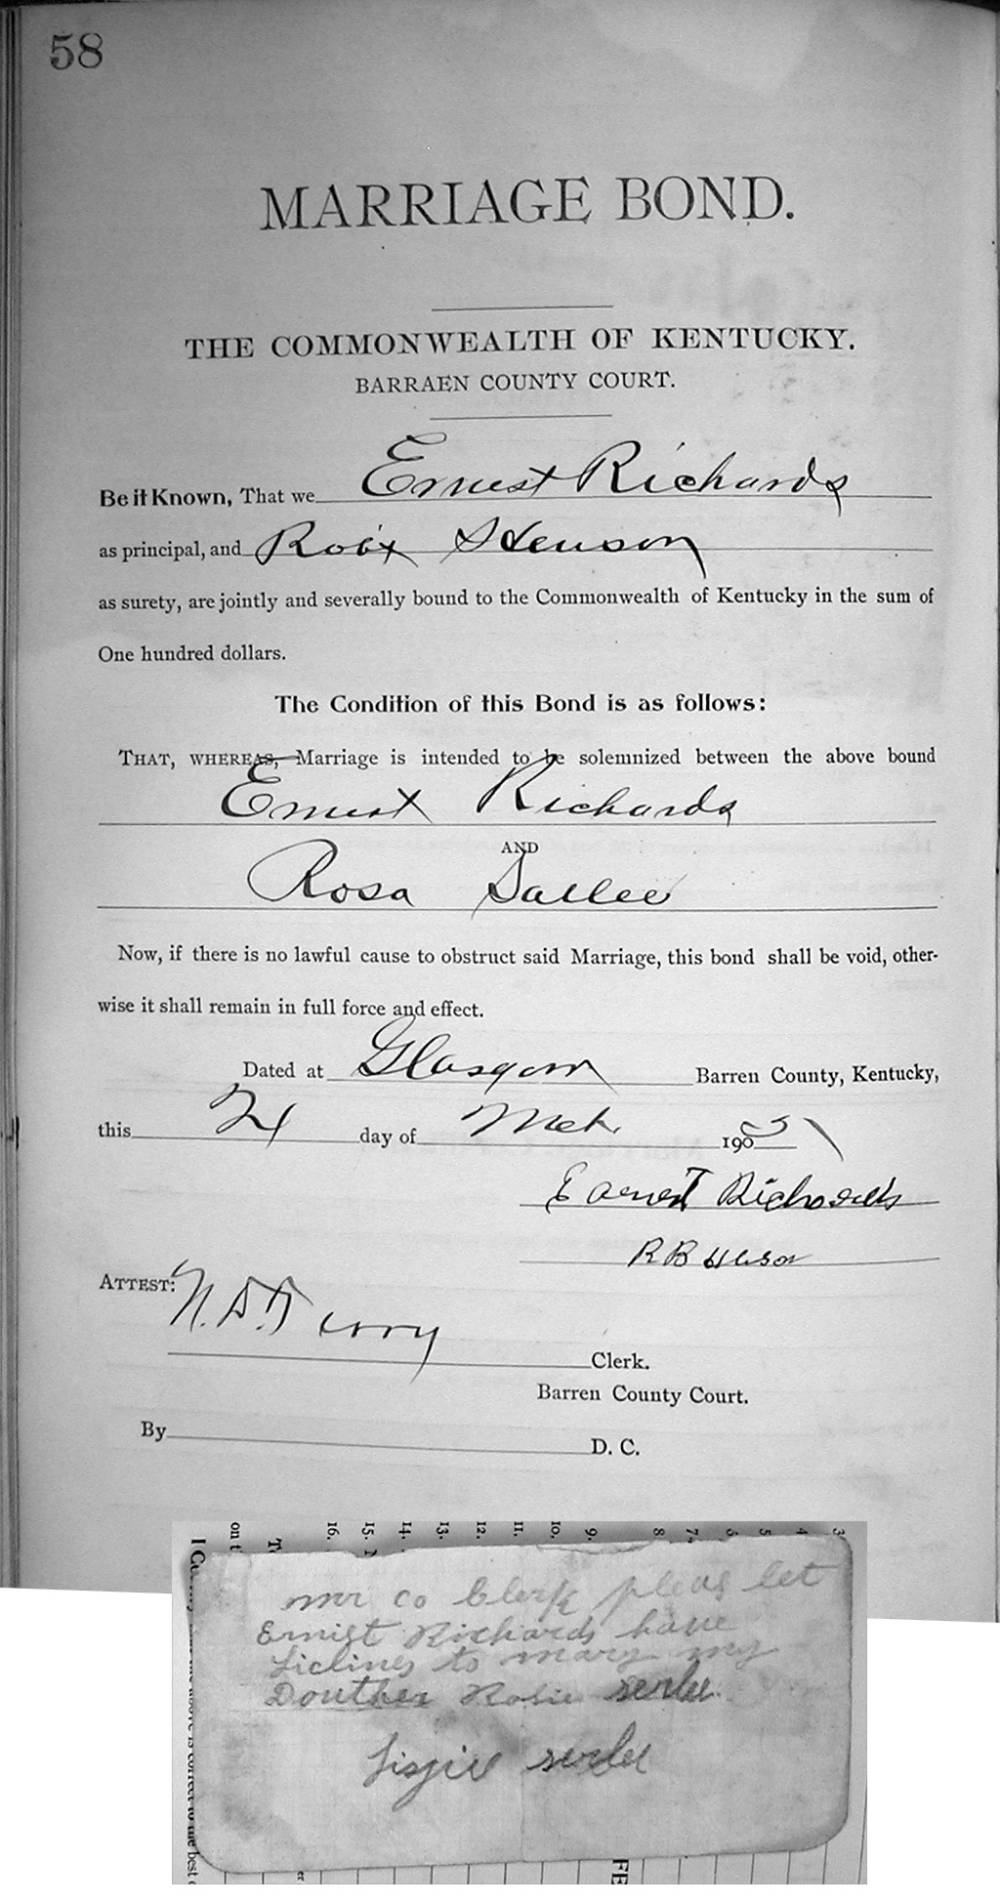 58
MARRIAGE BOND.
THE COMMONWEALTH OF KENTUCKY.
BARRAEN COUNTY COURT.
Be it Known, That we Ernest Richards
as principal, and Henson
as surety, are jointly and severally bound to the Commonwealth of Kentucky in the sum of
One hundred dollars.
The Condition of this Bond is as follows:
THAT, WHEREAS, Marriage is intended to be solemnized between the above bound
Ernest Richards
AND
Rosa Sallee
Now, if there is no lawful cause to obstruct said Marriage, this bond shall be void, other-
wise it shall remain in full force and effect.
Dated at Glasgow Barren County, Kentucky,
this 21 day of Mch. 1905
Earnest Richards
R B
ATTEST:
Terry
Clerk.
Barren County Court.
By D. C.
on t
16. 15. 14. 13. 12. 11. 10. 9. 8 7. 5 4 3
mr co Clerk pleas let
Ernist Richards have
Liclines to mary my
Douther Rosie serlee
serlee
FE